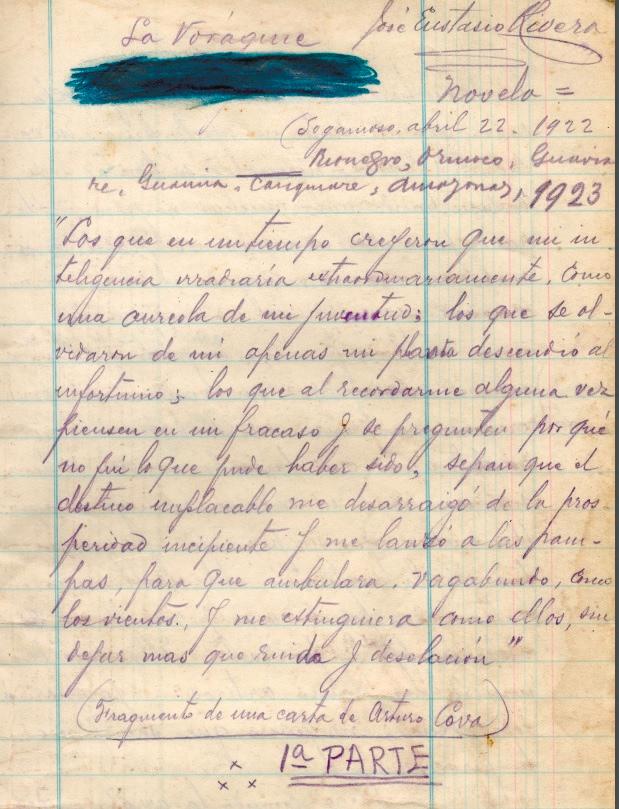 La Vorágine José Eustasio Rivera
Novela =
(Sogamoso, abril 22. 1922
Rionegro, Orinoco, Guavia
re, Guainia, Casiquiare, Amazonas, 1923
"Los que en un tiempo creyeron que mi in
teligencia irradiaría extraordinariamente, como
una aureola de mi juventud; los que se ol-
vidaron de mi apenas mi planta descendió al
infortunio; los que al recordarme alguna vez
piensen en mi fracaso y se pregunten por qué
no fui lo que pude haber sido, sepan que el
destino implacable me desarraigó de la pros-
peridad incipiente y me lanzó a las pam-
pas, para que ambulara, vagabundo, como
los vientos, y me extinguiera como ellos, sin
dejar mas que ruido y desolación"
(Fragmento de una carta de Arturo Cova)
1ª PARTE
x
x x